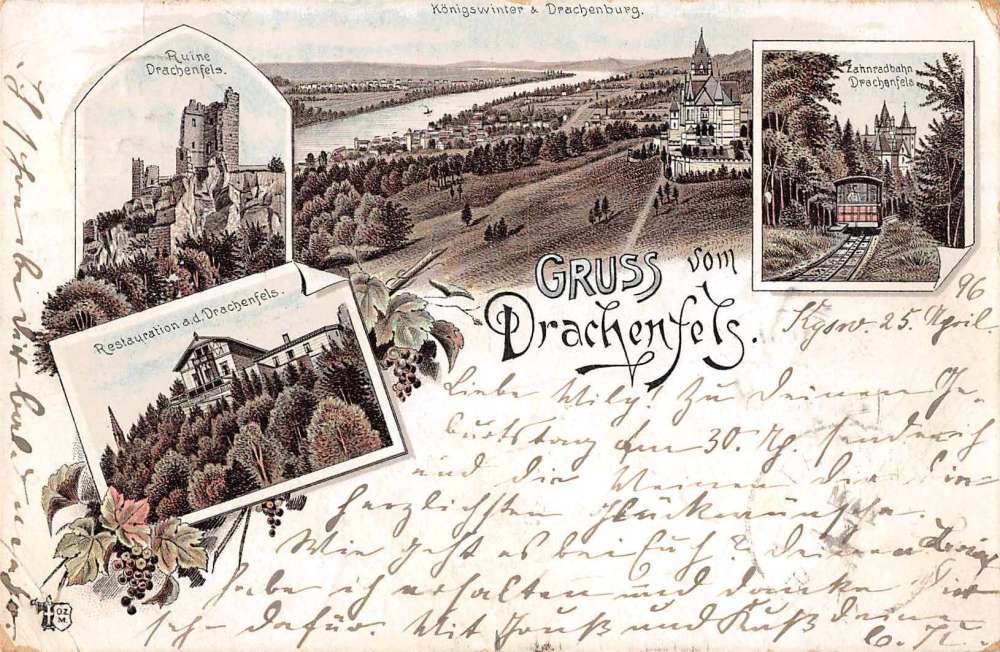 Königswinter & Drachenburg.
Ruine
Drachenfels.
Zahnradbahn
Drachenfels
Restauration a.d. Drachenfels.
GRUSS vom
Drachenfels.
96
Kgsw. 25. April.
Liebe Wily! Zu Deinem Ge-
burtstag am 30. send ich
und die Meinen die in-
herzlichsten Glückwünsche.
Wie geht es bei Euch? Deinen
habe ich erhalten und danke Dir
sch- dafür. Mit Gruß und Kuß Deine
O.Z.
M.